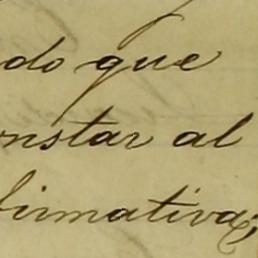 do que
onstar al
firmativa;